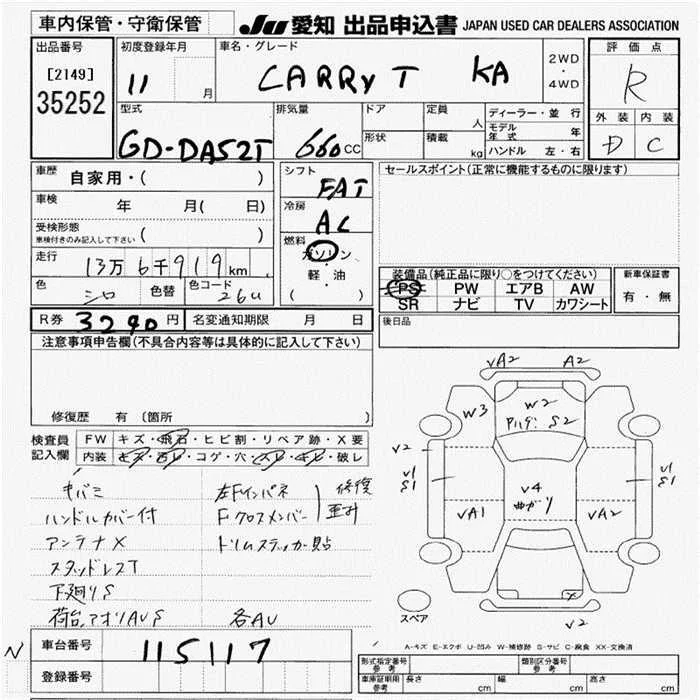 車内保管・守衛保管
JU 愛知 出品申込書 JAPAN USED CAR DEALERS ASSOCIATION
出品番号
[2149]
35252
初度登録年月
11 月
車名・グレード
CARRY T KA
2WD
・
4WD
評価点
R
外装 内装
D C
型式
GD-DA52T
排気量
660 cc
ドア
形状
定員
人
積載
kg
ディーラー・並行
モデル年式 年
ハンドル 左・右
車歴
自家用・( )
車検
年 月( 日)
受検形態
車検付きのみ記入して下さい ( )
走行
13万6千919km
色
シロ
色替
色コード
26U
シフト
FAT
冷房
AC
燃料
ガソリン
・
軽油
( )
セールスポイント(正常に機能するものに限ります)
装備品(純正品に限り○をつけてください)
PS PW エアB AW
SR ナビ TV カワシート
新車保証書
有・無
R券 3290円 名変通知期限 月 日
後日品
注意事項申告欄(不具合内容等は具体的に記入して下さい)
修復歴 有〔箇所 〕
検査員記入欄
FW キズ・飛石・ヒビ割・リペア跡・X要
内装 キズ・汚レ・コゲ・穴・スレ・キレ・破レ
キバミ
ハンドルカバー付
アンテナX
スタッドレスT
下廻りS
荷台、アオリAVS
左Fインパネ
Fクロスメンバー
修復
歪み
ドリムステッカー貼
各AU
VA2 A2
W3
W2
S2
V2
V1
S1
V4
曲ガリ
VA1
VA2
V1
S1
X
V2
スペア
A-キズ E-エクボ U-凹み W-補修跡 S-サビ C-腐食 XX-交換済
N
車台番号
115117
登録番号
型式指定番号 参考
類別区分番号 参考
車庫証明用 参考 長さ cm 幅 cm 高さ cm